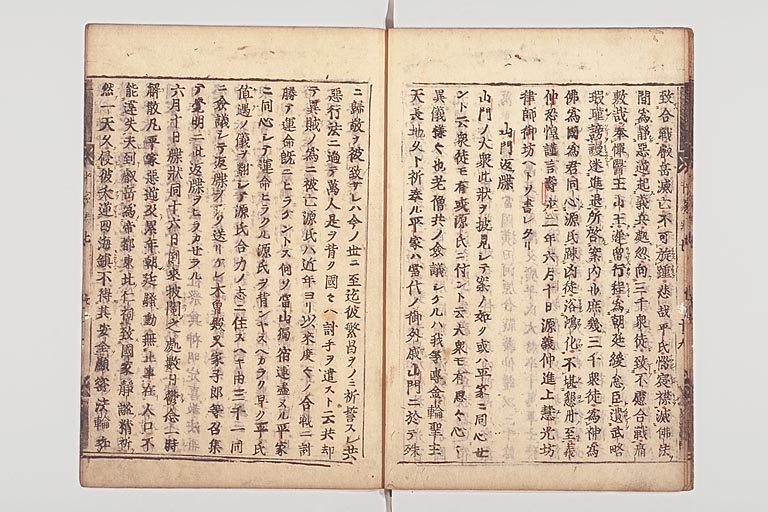 致合戰叡岳滅亡不可旋踵悲哉平氏悩宸襟滅佛法
間為静惡逆起義兵処忽向三千衆徒致不慮合戰痛
敷哉奉憚醫王山王啻留行程為朝廷緩怠臣遺武略
瑕瑾謗謾迷進退所啓案内也庶幾三千衆徒為神為
佛為國為君同心源氏誅凶徒浴鴻化不堪懇丹至義
仲恐惶謹言壽永二年六月十日源義仲進上慧光坊
律師御坊ヘトソ書レタリ
山門返牒
山門ノ大衆此狀ヲ披見シテ案ノ如ク或ハ平家ニ同心せ
ント云衆徒モ有或源氏ニ付ント云大衆モ有思々心々
異儀様々也老僧共ノ僉議シケルハ我等專金輪聖主
天長地久ト祈奉ル平家ハ當代ノ御外戚山門ニ於テ殊
ニ歸敬ヲ被致サレハ今ノ世ニ至迄彼繁昌ヲノミ祈誓ス然共
惡行法ニ過テ萬人是ヲ背ク國々ヘ討手ヲ遣スト云共却
テ異賊ノ為ニ被亡源氏ハ近年ヨリ以來度々ノ合戰ニ討
勝テ運命既ニヒラケントス何ソ當山獨宿運盡ヌル平家
ニ同心シテ運命ヒラクル源氏ヲ背ンヤスヘカラク早ク平氏
値遇ノ儀ヲ翻シテ源氏合力ノ心ニ住スヘキ由三千一同
ニ僉議シテ返牒ヲコソ送リケレ木曽殿又家子郎等召集
テ覺明ニ此返牒ヲヒラカせラル
六月十日牒狀同十六日到來披閲之處數日欝念一時
解散凡平家惡逆及累年朝廷騷動無止事在人口不
能遺失夫到叡岳為帝都東北仁祠致國家静謐精祈
然一天久侵彼夭逆四海鎮不得其安全顯密法輪如